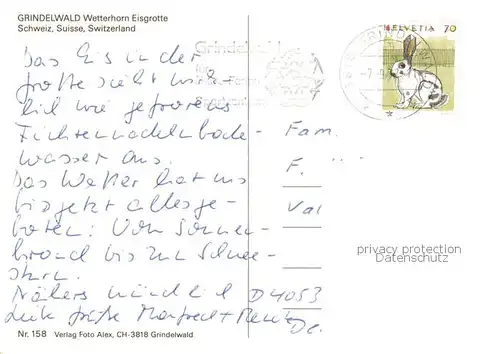 GRINDELWALD Wetterhorn Eisgrotte
Schweiz, Suisse, Switzerland
HELVETIA 70
Grindelwald
GRINDELW
Das Eis in der
Grotte sieht wirk-
lich wie gefrorenes
Fichtennadelbade-
wasser aus.
Das Wetter hat uns
bis jetzt alles ge-
boten: Vom Sonnen-
brand bis zum Schnee-
sturm.
Näheres mündlich
Liebe Grüße Manfred +
Fam.
F.
Val
D 4053
privacy protection
Datenschutz
Nr. 158 Verlag Foto Alex, CH-3818 Grindelwald